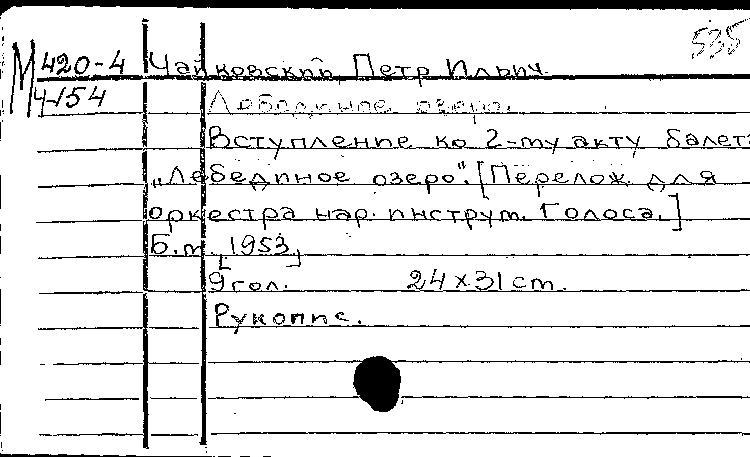 535
М 420-4 Чайковский, Петр Ильич.
Ч-154 Лебединое озеро.
Вступление ко 2-му акту балета
„Лебединое озеро". [Перелож. для
оркестра нар. инструм. Голоса.]
Б.м. [1953]
9 гол. 24 x 31 cm.
Рукопис.